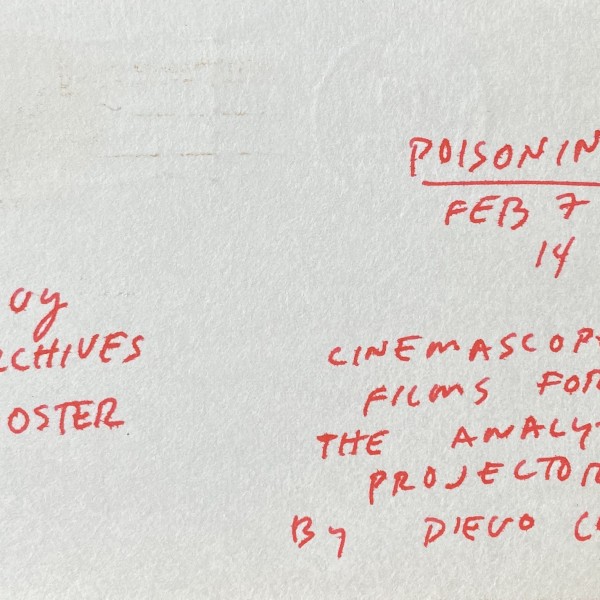 POISONIN
FEB 7
14
ay
RCHIVES
OSTER
CINEMASCOP
FILMS FOR
THE ANALY
PROJECTOR
By DIEGO C